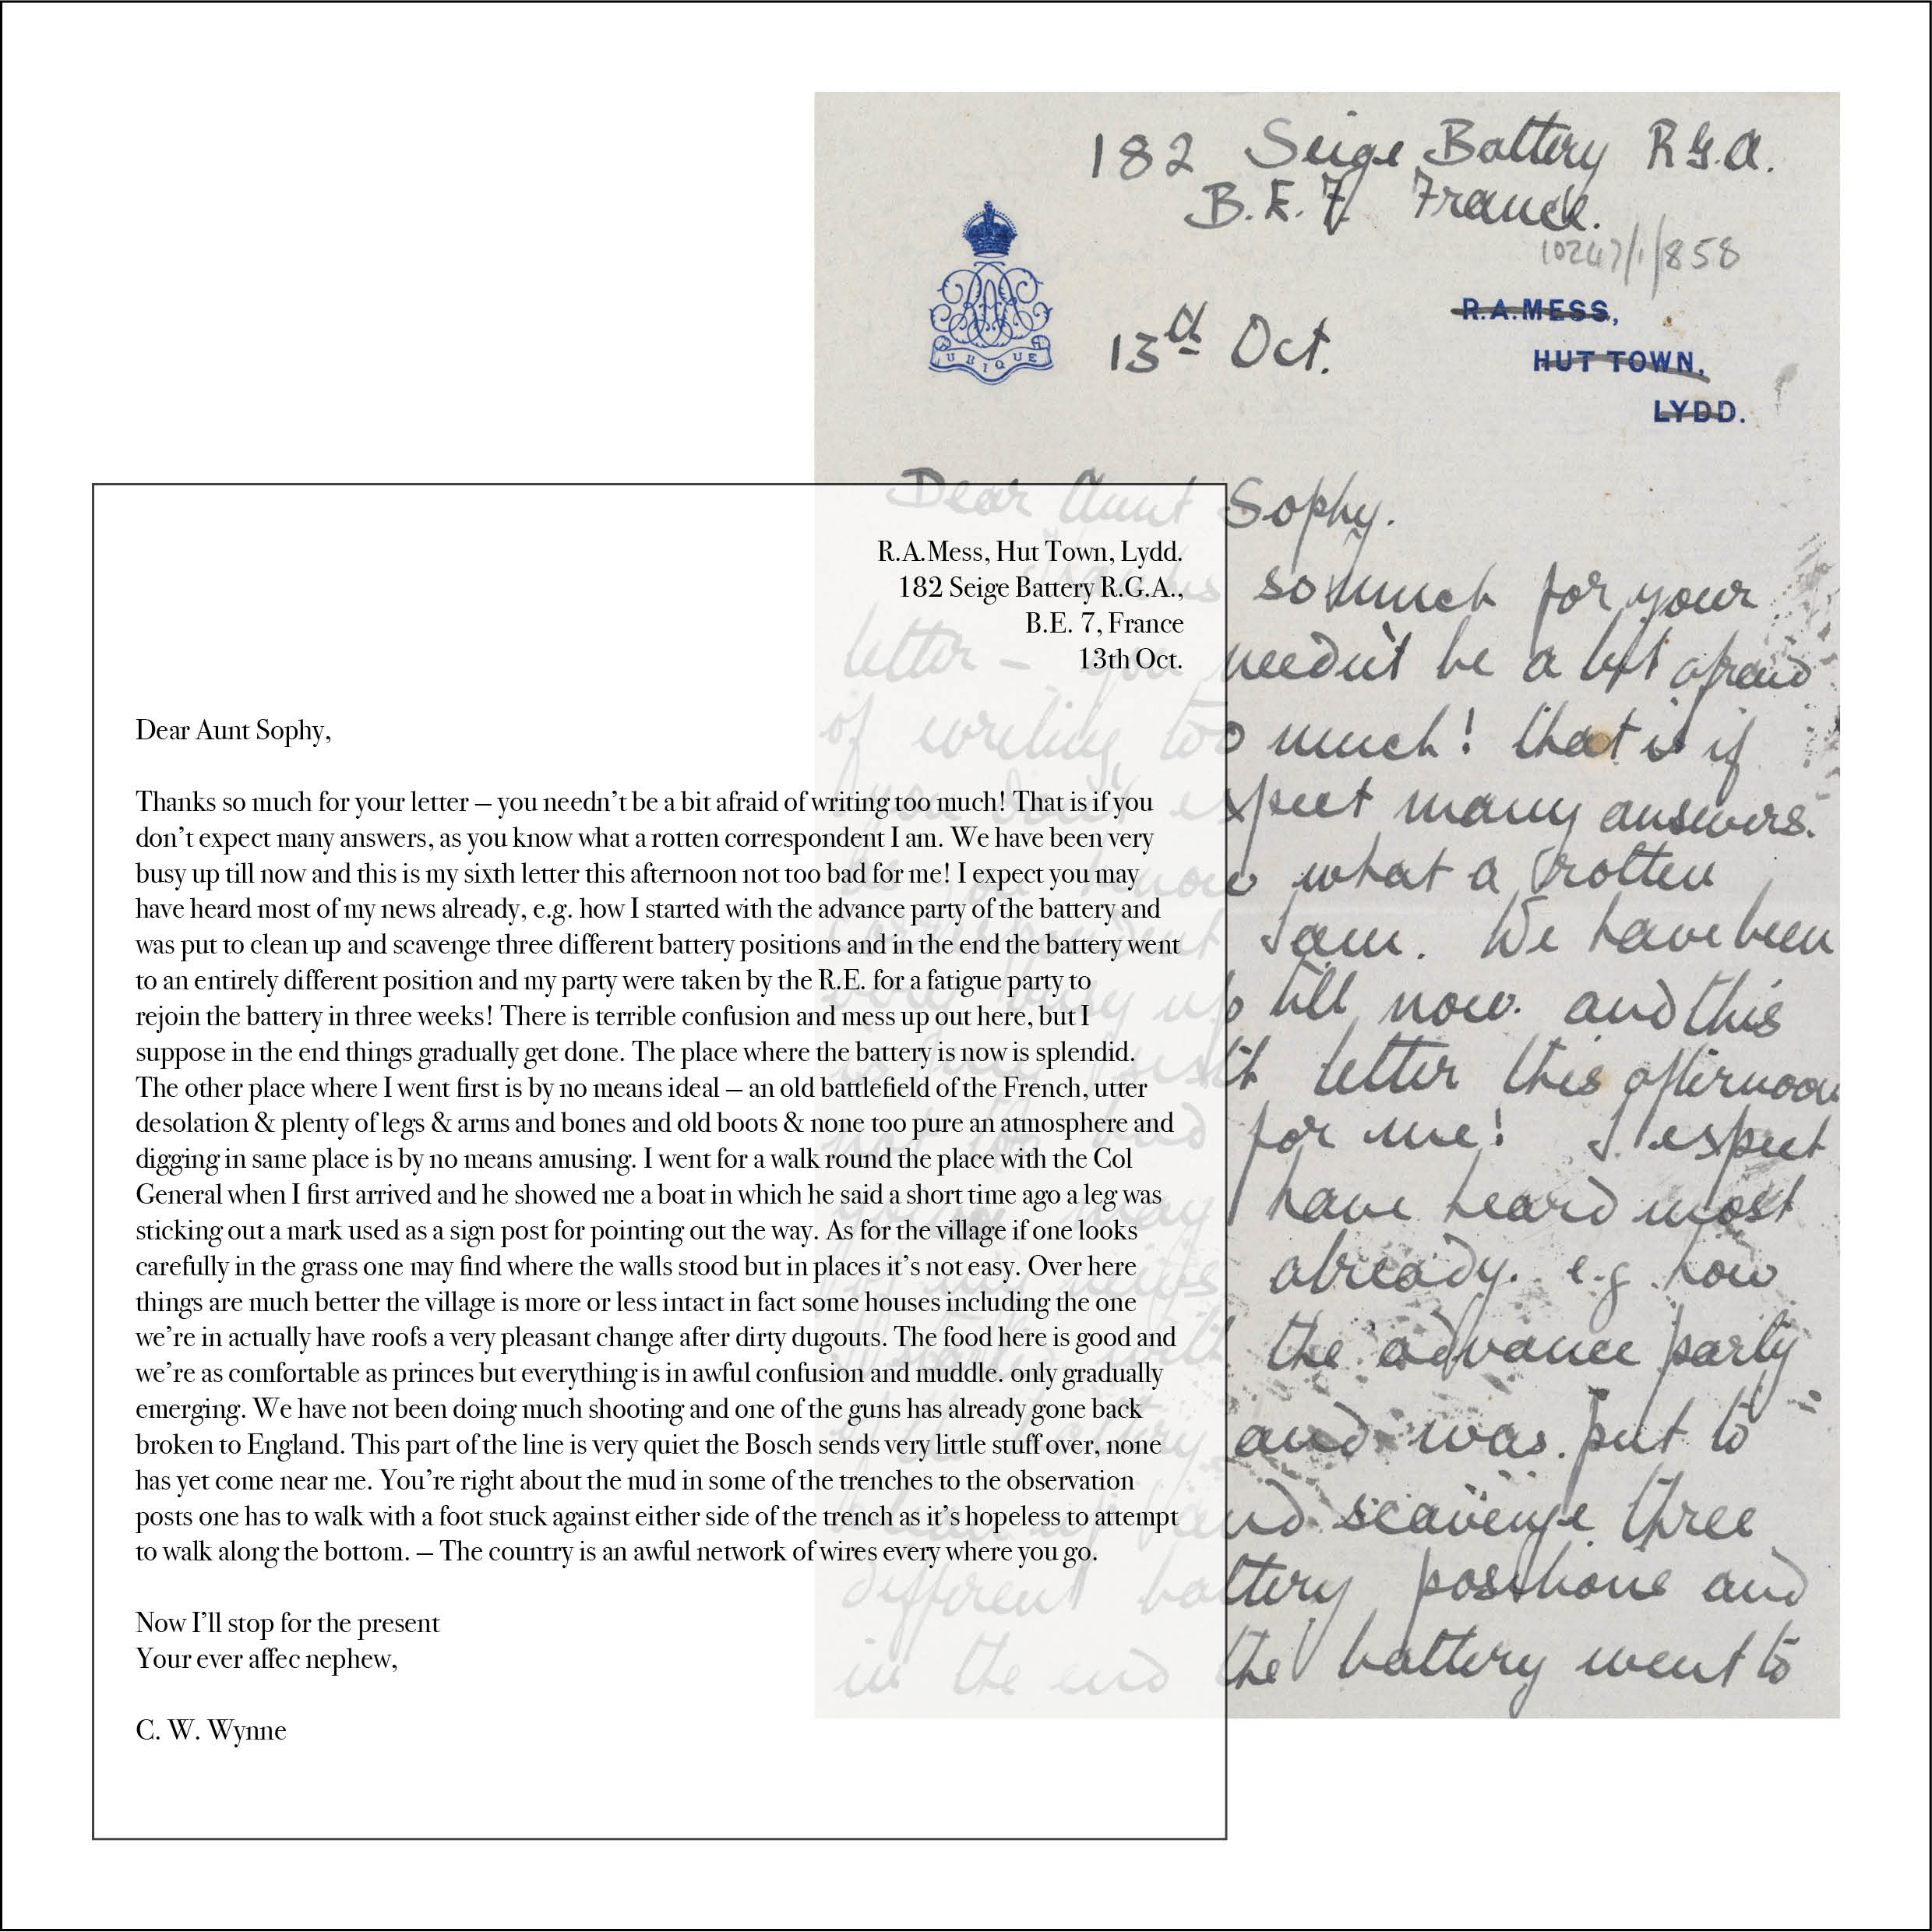 182 Seige Battery R.G.A.
B.E.F. France.
10247/1/858
R.A.MESS,
HUT TOWN,
LYDD.
UBIQUE
13th Oct.
Dear Aunt Sophy.
Thanks so much for your
letter – you needn't be a bit afraid
of writing too much! that is if
you don't expect many answers.
as you know what a rotten
correspondent I am. We have been
very busy up till now. and this
is my sixth letter this afternoon
not too bad for me! I expect
you may have heard most
of my news already. e.g how
I started with the advance party
of the battery and was put to
clean up and scavenge three
different battery positions and
in the end the battery went to
R.A.Mess, Hut Town, Lydd.
182 Seige Battery R.G.A.,
B.E. 7, France
13th Oct.
Dear Aunt Sophy,
Thanks so much for your letter – you needn't be a bit afraid of writing too much! That is if you
don't expect many answers, as you know what a rotten correspondent I am. We have been very
busy up till now and this is my sixth letter this afternoon not too bad for me! I expect you may
have heard most of my news already, e.g. how I started with the advance party of the battery and
was put to clean up and scavenge three different battery positions and in the end the battery went
to an entirely different position and my party were taken by the R.E. for a fatigue party to
rejoin the battery in three weeks! There is terrible confusion and mess up out here, but I
suppose in the end things gradually get done. The place where the battery is now is splendid.
The other place where I went first is by no means ideal – an old battlefield of the French, utter
desolation & plenty of legs & arms and bones and old boots & none too pure an atmosphere and
digging in same place is by no means amusing. I went for a walk round the place with the Col
General when I first arrived and he showed me a boat in which he said a short time ago a leg was
sticking out a mark used as a sign post for pointing out the way. As for the village if one looks
carefully in the grass one may find where the walls stood but in places it's not easy. Over here
things are much better the village is more or less intact in fact some houses including the one
we're in actually have roofs a very pleasant change after dirty dugouts. The food here is good and
we're as comfortable as princes but everything is in awful confusion and muddle. only gradually
emerging. We have not been doing much shooting and one of the guns has already gone back
broken to England. This part of the line is very quiet the Bosch sends very little stuff over, none
has yet come near me. You're right about the mud in some of the trenches to the observation
posts one has to walk with a foot stuck against either side of the trench as it's hopeless to attempt
to walk along the bottom. – The country is an awful network of wires every where you go.
Now I'll stop for the present
Your ever affec nephew,
C. W. Wynne